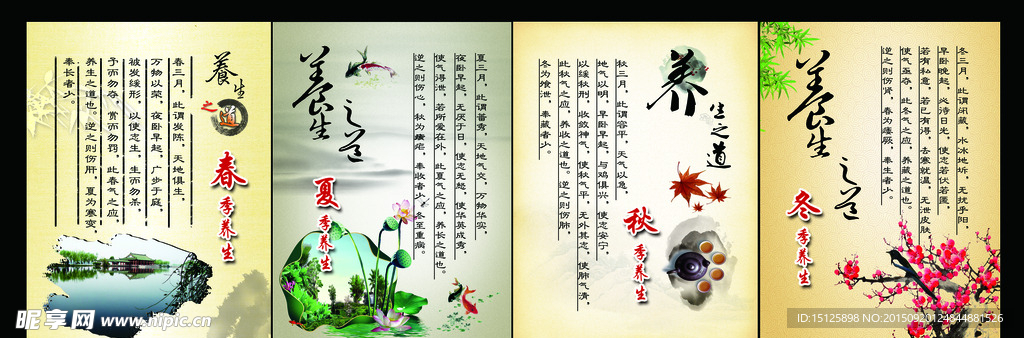 養生
之道
春季养生
春三月，此谓发陈，天地俱生，
万物以荣，夜卧早起，广步于庭，
被发缓形，以使志生，生而勿杀，
予而勿夺，赏而勿罚，此春气之应，
养生之道也。逆之则伤肝，夏为寒变，
奉长者少。
養生之道
夏季养生
夏三月，此谓蕃秀，天地气交，万物华实，
夜卧早起，无厌于日，使志无怒，使华英成秀，
使气得泄，若所爱在外，此夏气之应，养长之道也。
逆之则伤心，秋为痎疟，奉收者少，冬至重病。
养生之道
秋季养生
秋三月，此谓容平，天气以急，
地气以明，早卧早起，与鸡俱兴，使志安宁，
以缓秋刑，收敛神气，使秋气平，无外其志，使肺气清，
此秋气之应，养收之道也。逆之则伤肺，
冬为飧泄，奉藏者少。
養生之道
冬季养生
冬三月，此谓闭藏，水冰地坼，无扰乎阳，
早卧晚起，必待日光，使志若伏若匿，
若有私意，若已有得，去寒就温，无泄皮肤，
使气亟夺，此冬气之应，养藏之道也。
逆之则伤肾，春为痿厥，奉生者少。
昵享网 www.nipic.cn
ID:15125898 NO:20150920124844881526